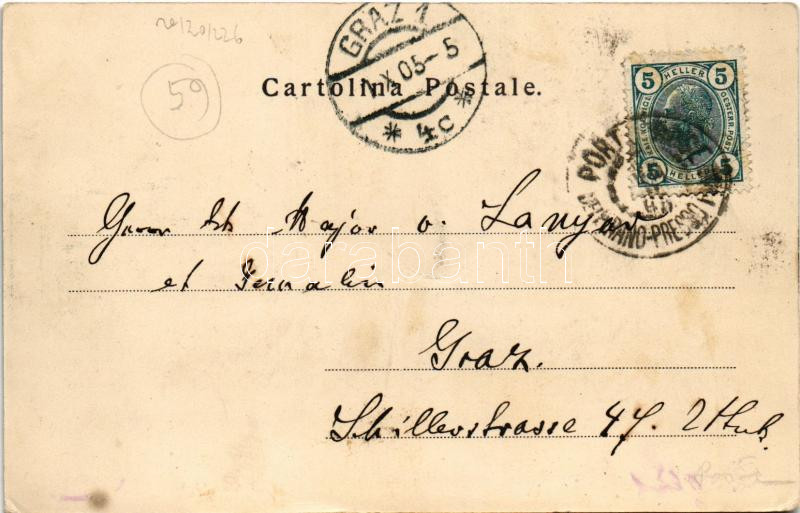 20/20/226
59
GRAZ 1
X 05-5
* 4c *
Cartolina Postale.
5 HELLER 5
KAIS. KÖNIGL. OESTERR. POST
5 HELLER 5
PORT
PRESSO
Major v. Lanyar
et Gemalin
Graz.
Schillerstrasse 47.
darabanth